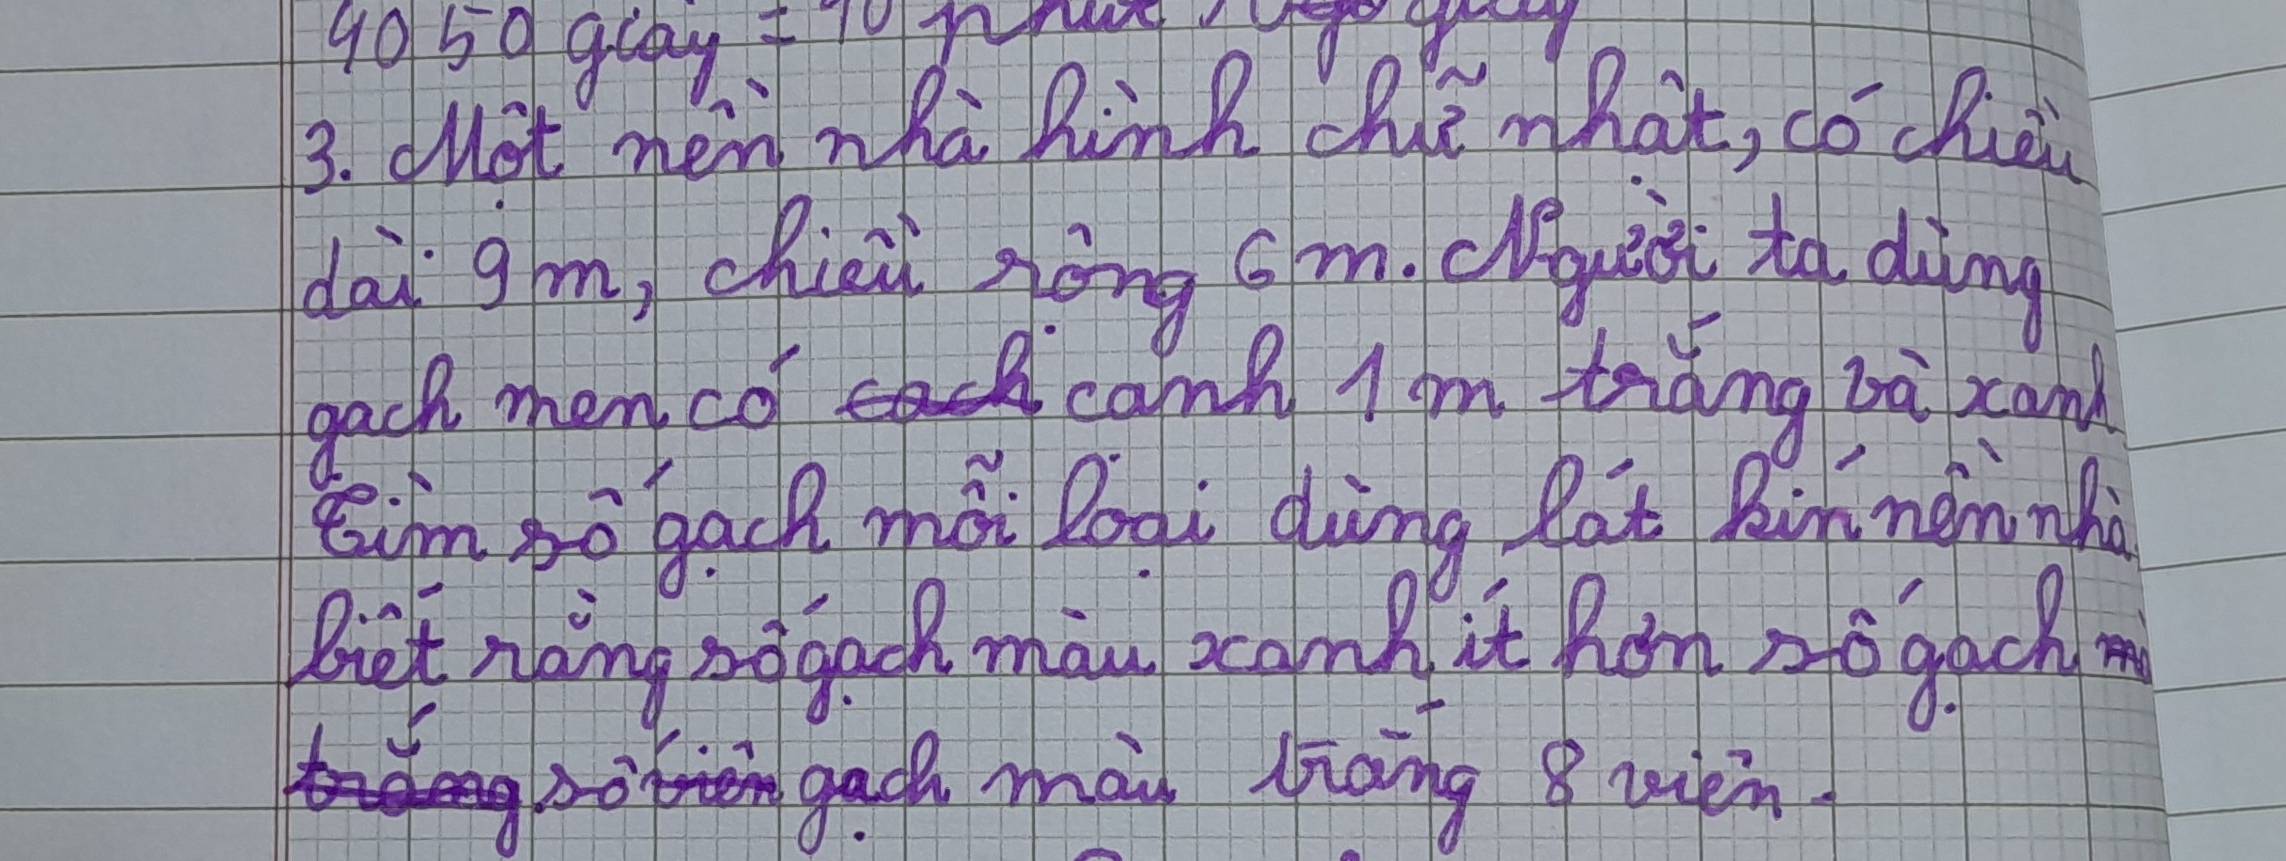 4050 giây = 40 phút giây
3. Một nền nhà hình chữ nhật, có chiều
dài 9 m, chiều rộng 6 m. Người ta dùng
gạch men có cach cạnh 1 m trắng và xanh
Tìm số gạch mỗi loại dùng lát kín nền nhà
biết rằng số gạch màu xanh ít hơn số gạch
trắng số viên gạch màu trắng 8 viên.